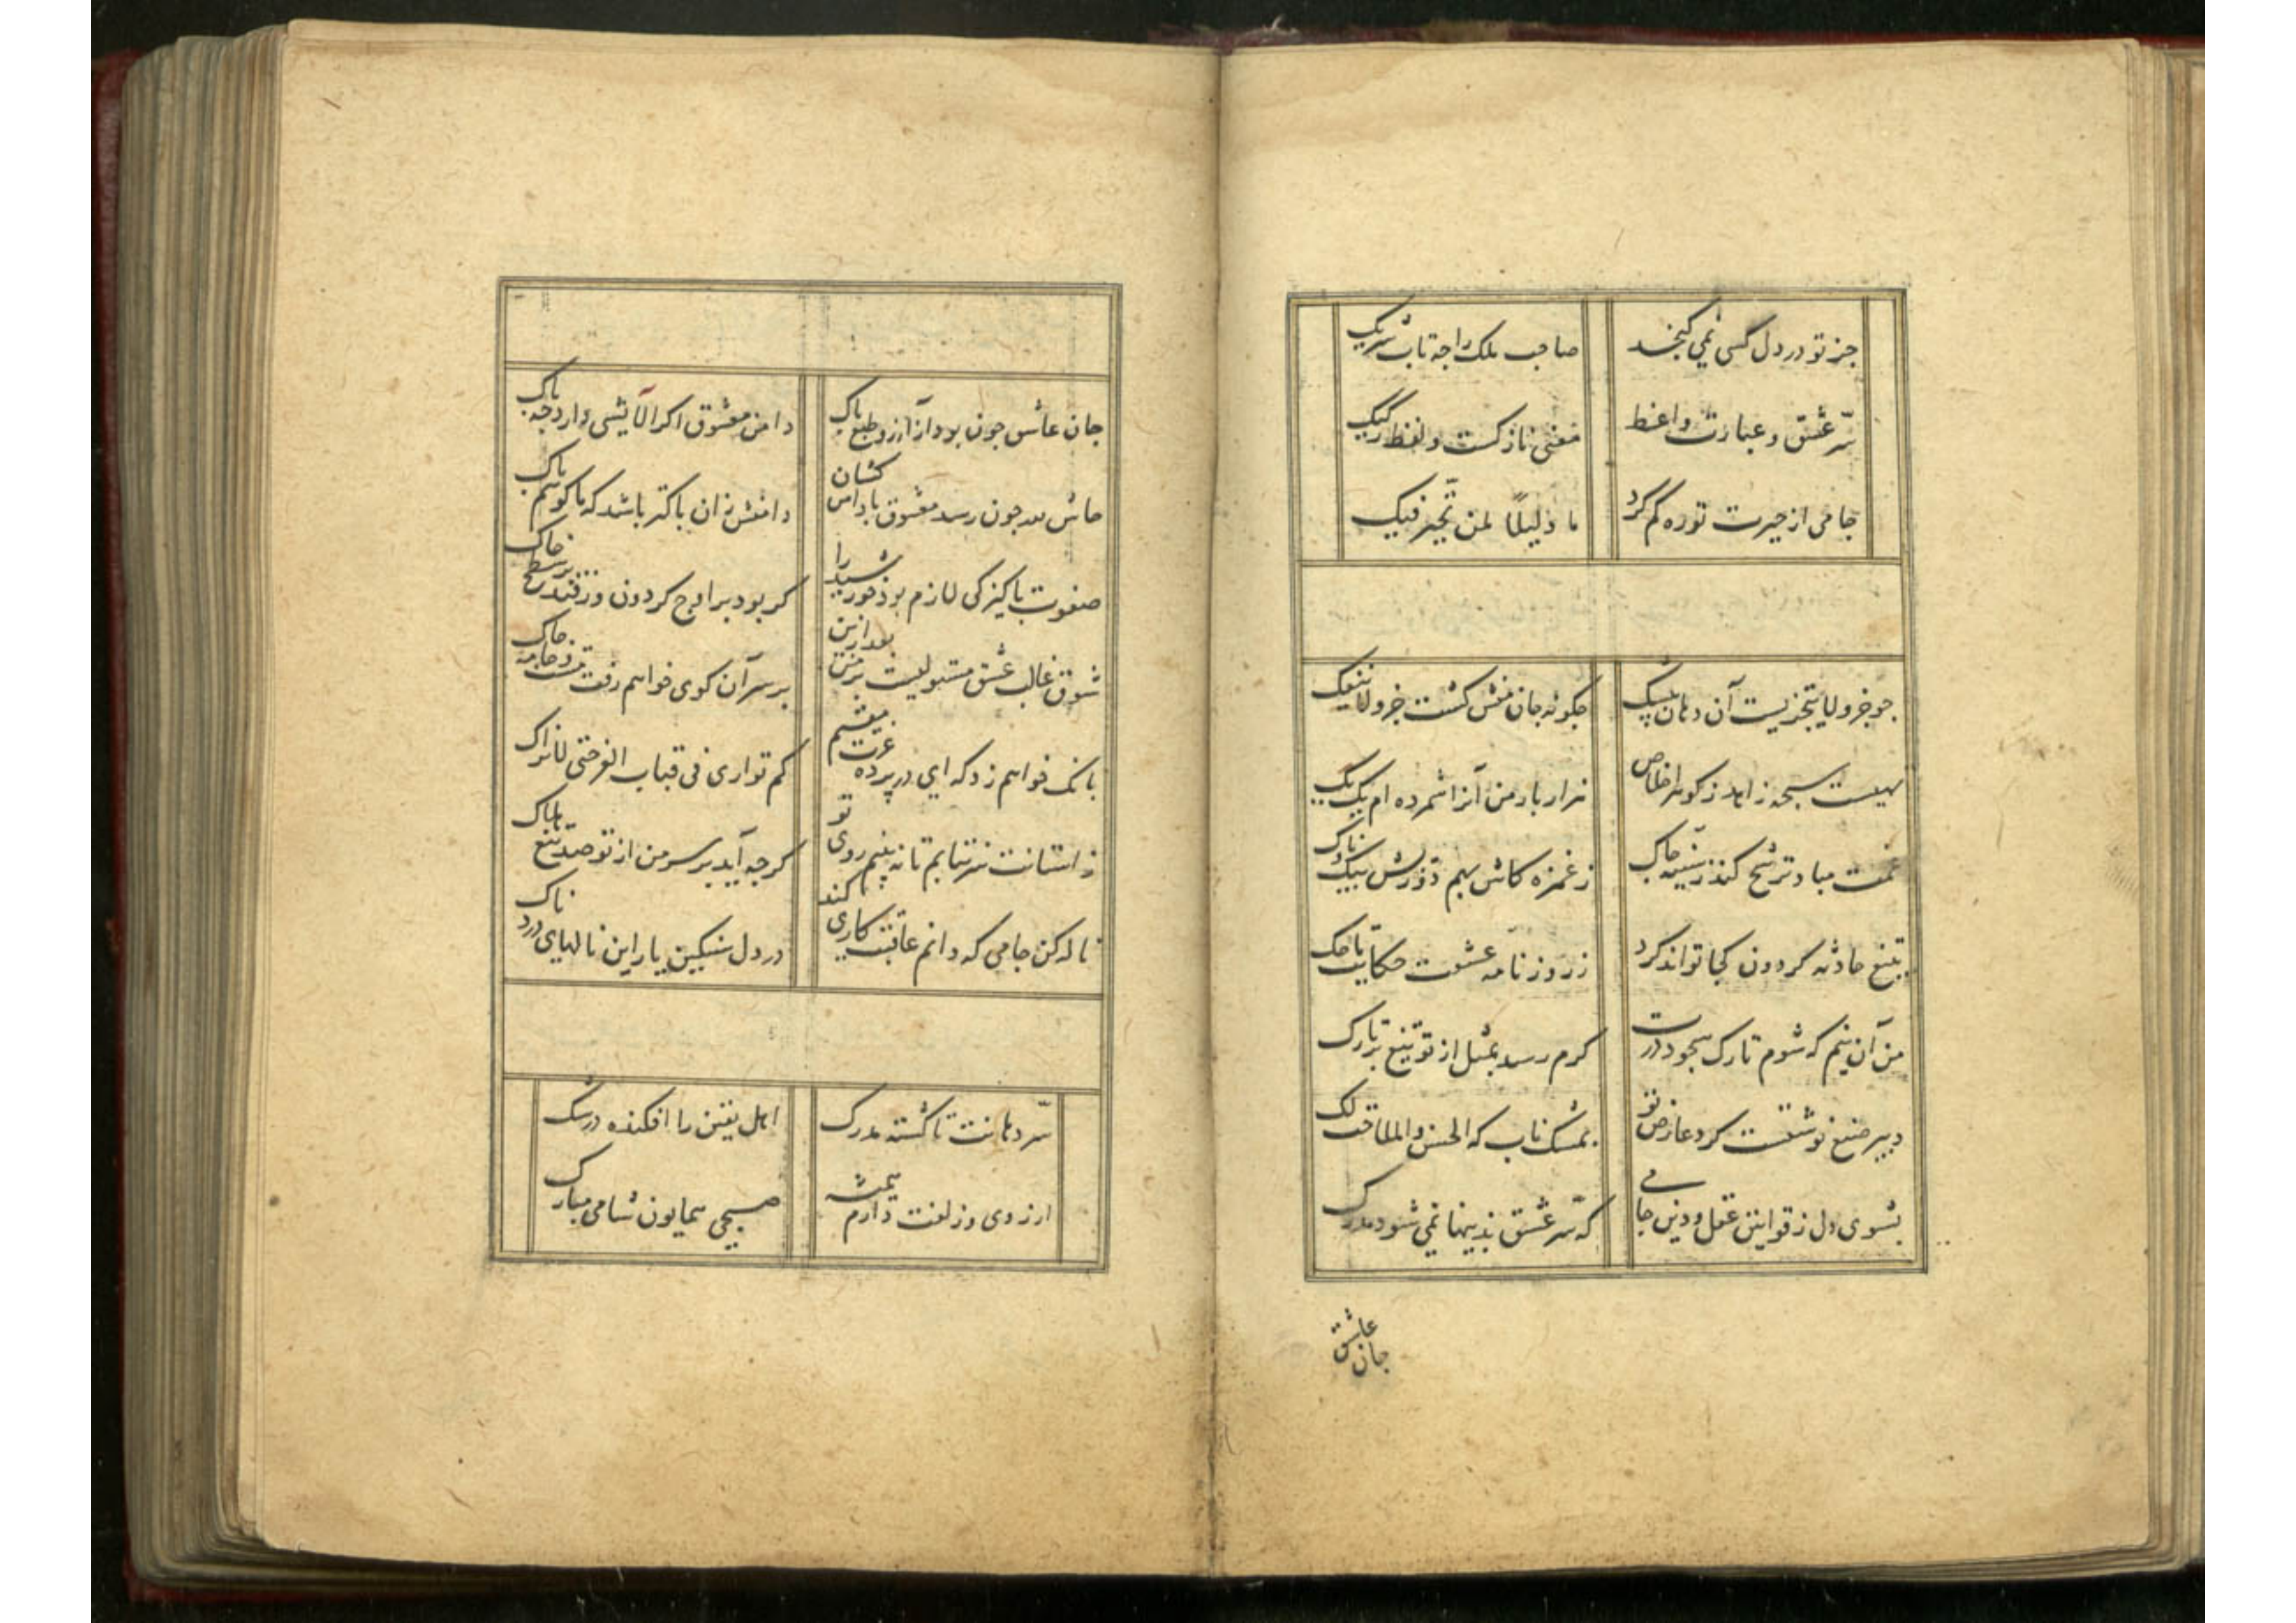 جز تو در دل کسی نمی کنجد صاحب ملک را جه تاب شریک
سرّ عشق و عبارت واعظ معنی نازکست و لفظ رکیک
جامی از حیرت تو ره کم کرد یا دلیلاً لمن تحیّر فیک
جو جزو لا یتجزیست آن دهان بیشک جکونه جان منش کشت جزو لا ینفک
نهیست سبحه زاهد ز کوهر اخلاص هزار بار من آنرا شمرده ام یک یک
غمت مباد ترشّح کند ز سینه جاک ز غمزه کاش بهم دوزدش بیک ناوک
بتیغ حادثه کردون کجا تواند کرد ز روزنامه عشقت حکایت ما حک
من آن نیم که شوم تارک سجود درت کرم رسد بمثل از تو تیغ بر تارک
دبیر صنع نوشتست کرد عارض تو بمشک ناب که الحسن والملاحت لک
بشوی دل ز قوانین عقل و دین جامی که سرّ عشق بدینها نمی شود مدرک
جان عاشق
جان عاشق جون بود از آرزو طبع باک دامن معشوق اکر آلایشی دارد جه باک
جون رسد معشوق با دامن کشان دامنش زان باکتر باشد که با کویم باک
صفوت باکیزکی لازم بود خورشید را کر بود بر اوج کردون ور فتد بر سطح خاک
شوق غالب عشق مستولیست بر من بعد ازین بر سر آن کوی خواهم رفت مست و جامه جاک
بانک خواهم زد که ای در برده عزت مقیم کم تواری فی قباب العز حتی لا نراک
ز استانت سر نتابم تا نه بینم روی تو کر جه آید بر سر من از تو صد تیغ هلاک
ناله کن جامی که دانم عاقبت کاری کند در دل سنکین یار این نالهای درد ناک
سرّ دهانت تا کشته مدرک اهل یقین را افکنده در شک
از روی و زلفت دارم همیشه صبحی همایون شامی مبارک